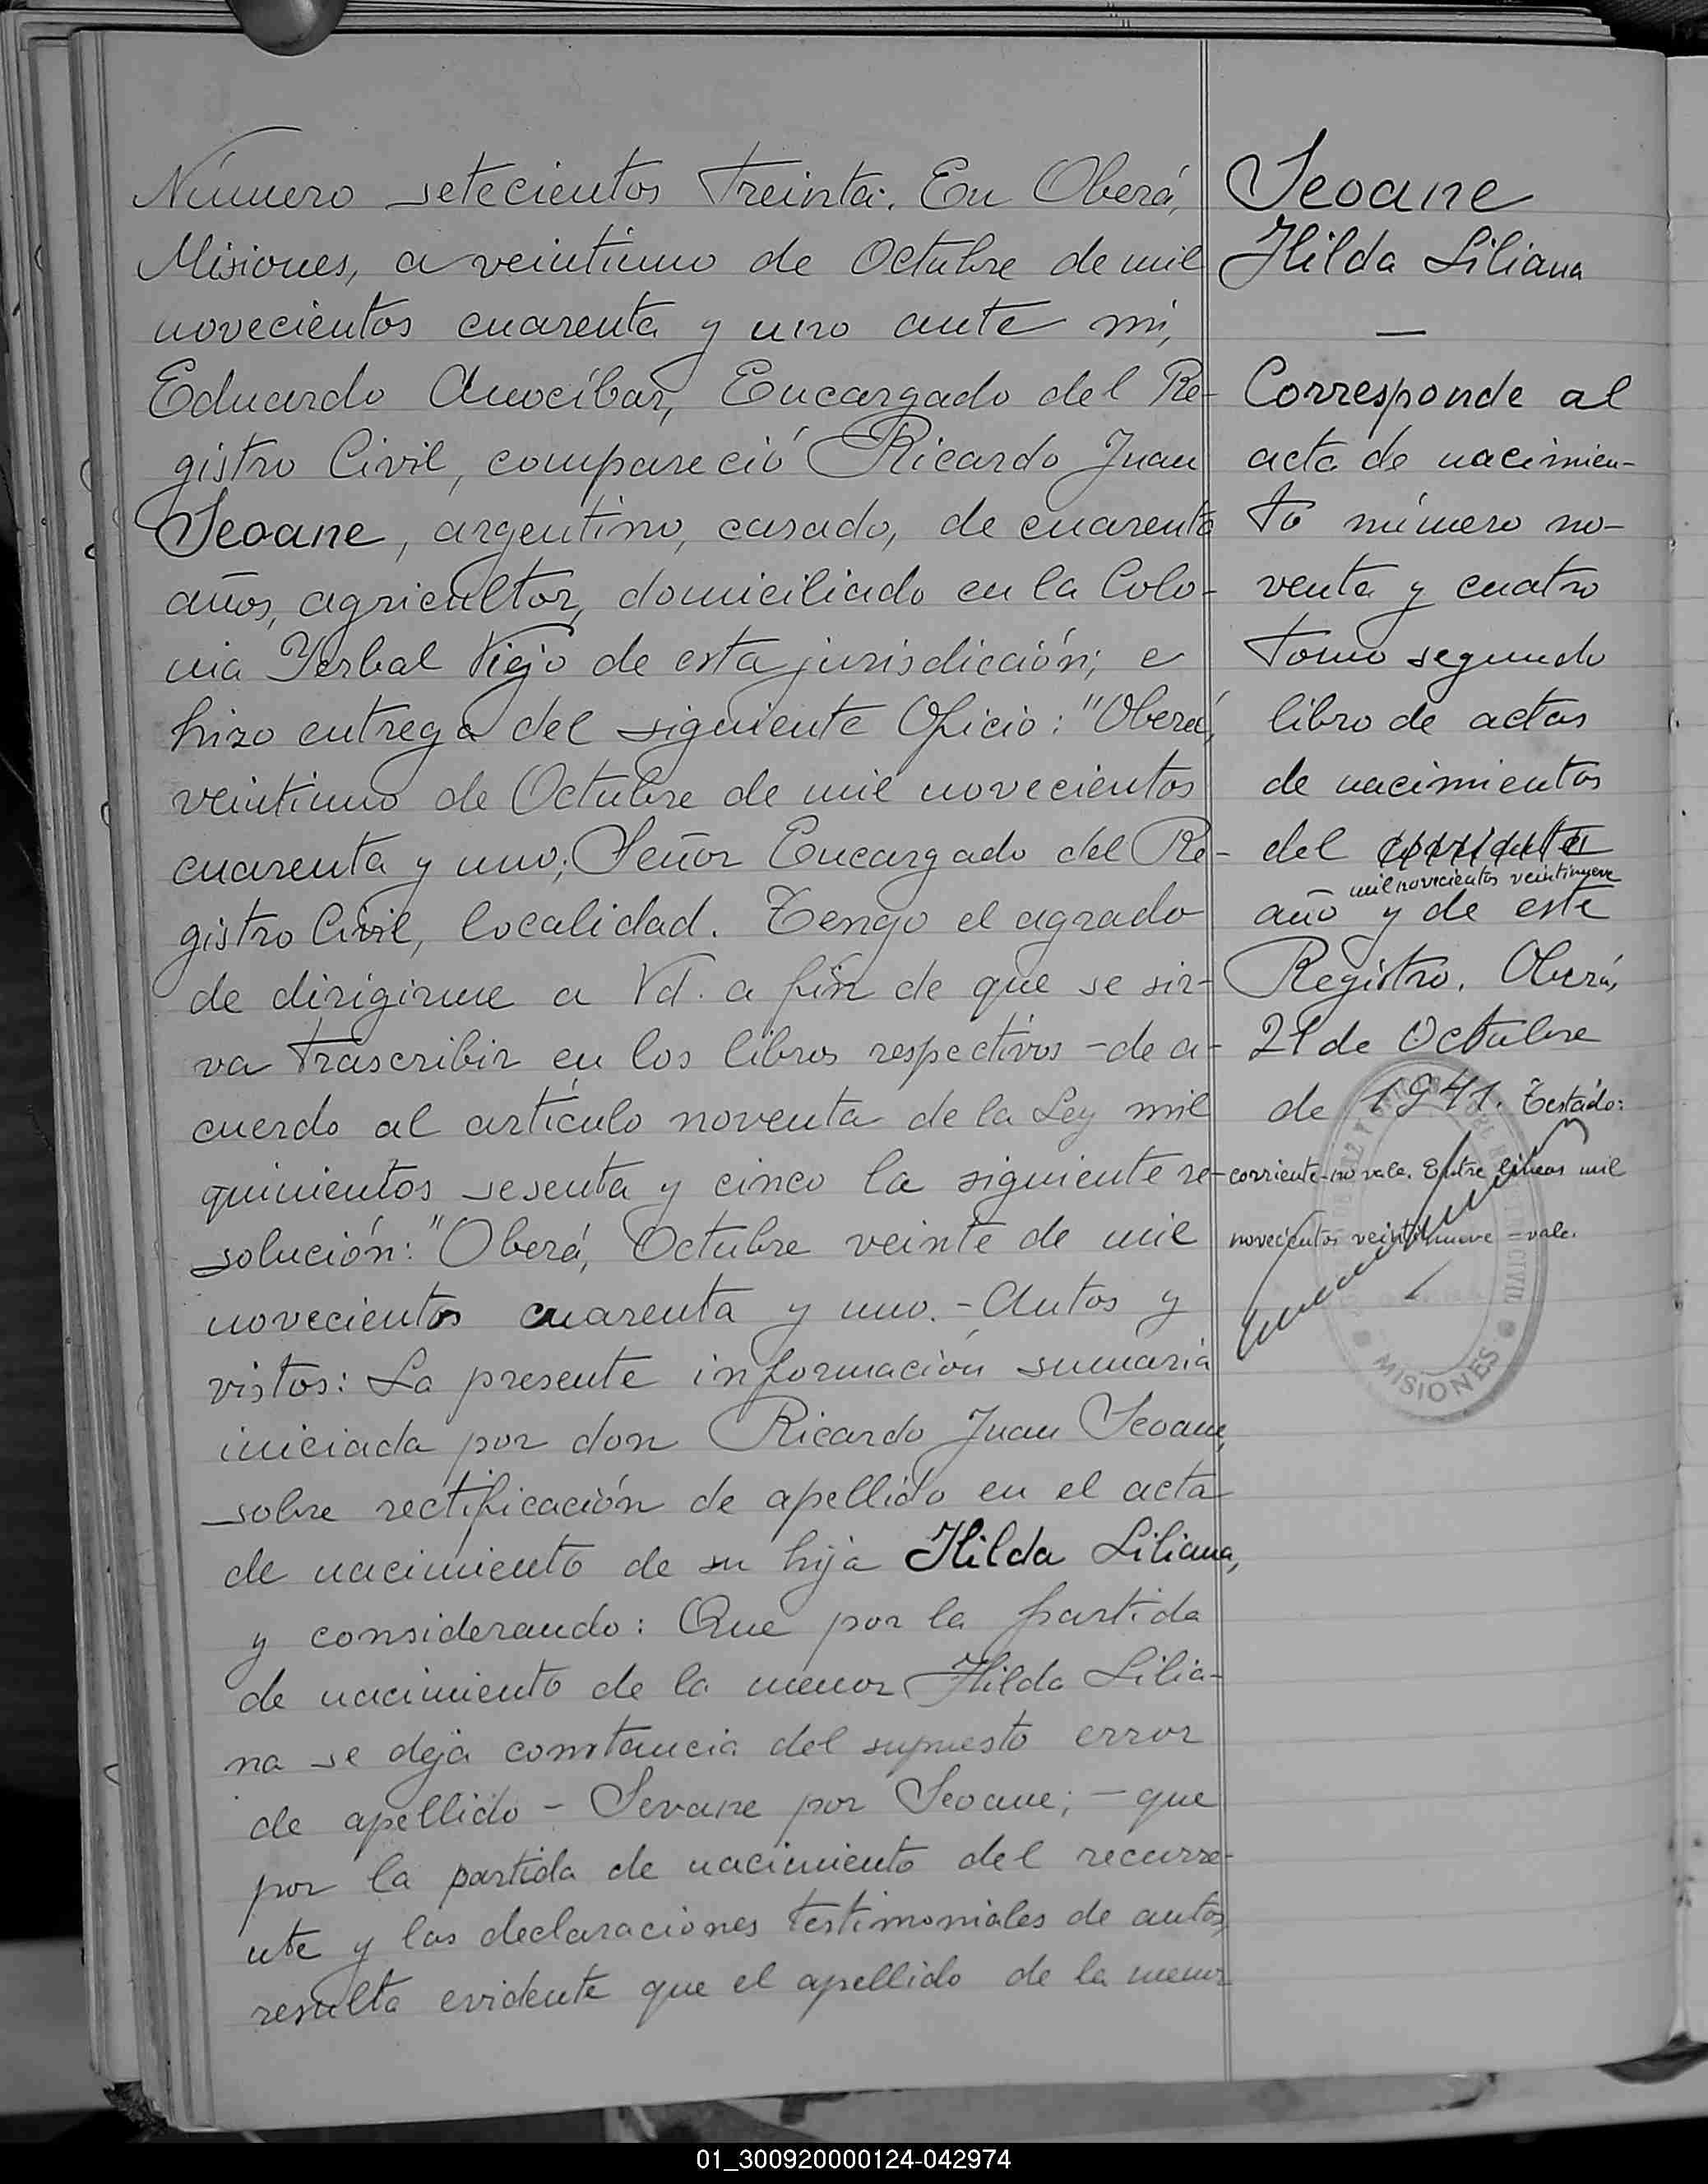 Número setecientos treinta. En Oberá,
Misiones, a veintiuno de Octubre de mil
novecientos cuarenta y uno ante mi,
Eduardo Anocíbar, Encargado del Re-
gistro Civil, compareció Ricardo Juan
Seoane, argentino, casado, de cuarenta
años, agricultor, domiciliado en la Colo-
nia Yerbal Viejo de esta jurisdicción; e
hizo entrega del siguiente Oficio: "Oberá,
veintiuno de Octubre de mil novecientos
cuarenta y uno; Señor Encargado del Re-
gistro Civil, localidad. Tengo el agrado
de dirigirme a Vd. a fin de que se sir-
va trascribir en los libros respectivos -de a-
cuerdo al artículo noventa de la Ley mil
quinientos sesenta y cinco la siguiente re-
solución: "Oberá, Octubre veinte de mil
novecientos cuarenta y uno.- Autos y
vistos: La presente información sumaria
iniciada por don Ricardo Juan Seoane,
sobre rectificación de apellido en el acta
de nacimiento de su hija Hilda Liliana,
y considerando: Que por la partida
de nacimiento de la menor Hilda Lilia-
na se deja constancia del supuesto error
de apellido - Sevane por Seoane; - que
por la partida de nacimiento del recurre-
nte y las declaraciones testimoniales de autos,
resulta evidente que el apellido de la menor
Seoane
Hilda Liliana
—
Corresponde al
acta de nacimien-
to número no-
venta y cuatro
tomo segundo
libro de actas
de nacimientos
del corriente
mil novecientos veintinueve
año y de este
Registro. Oberá,
21 de Octubre
de 1941. Testado:
corriente-no vale. Entre lineas mil
novecientos veintinueve =vale.
MISIONES
01_300920000124-042974